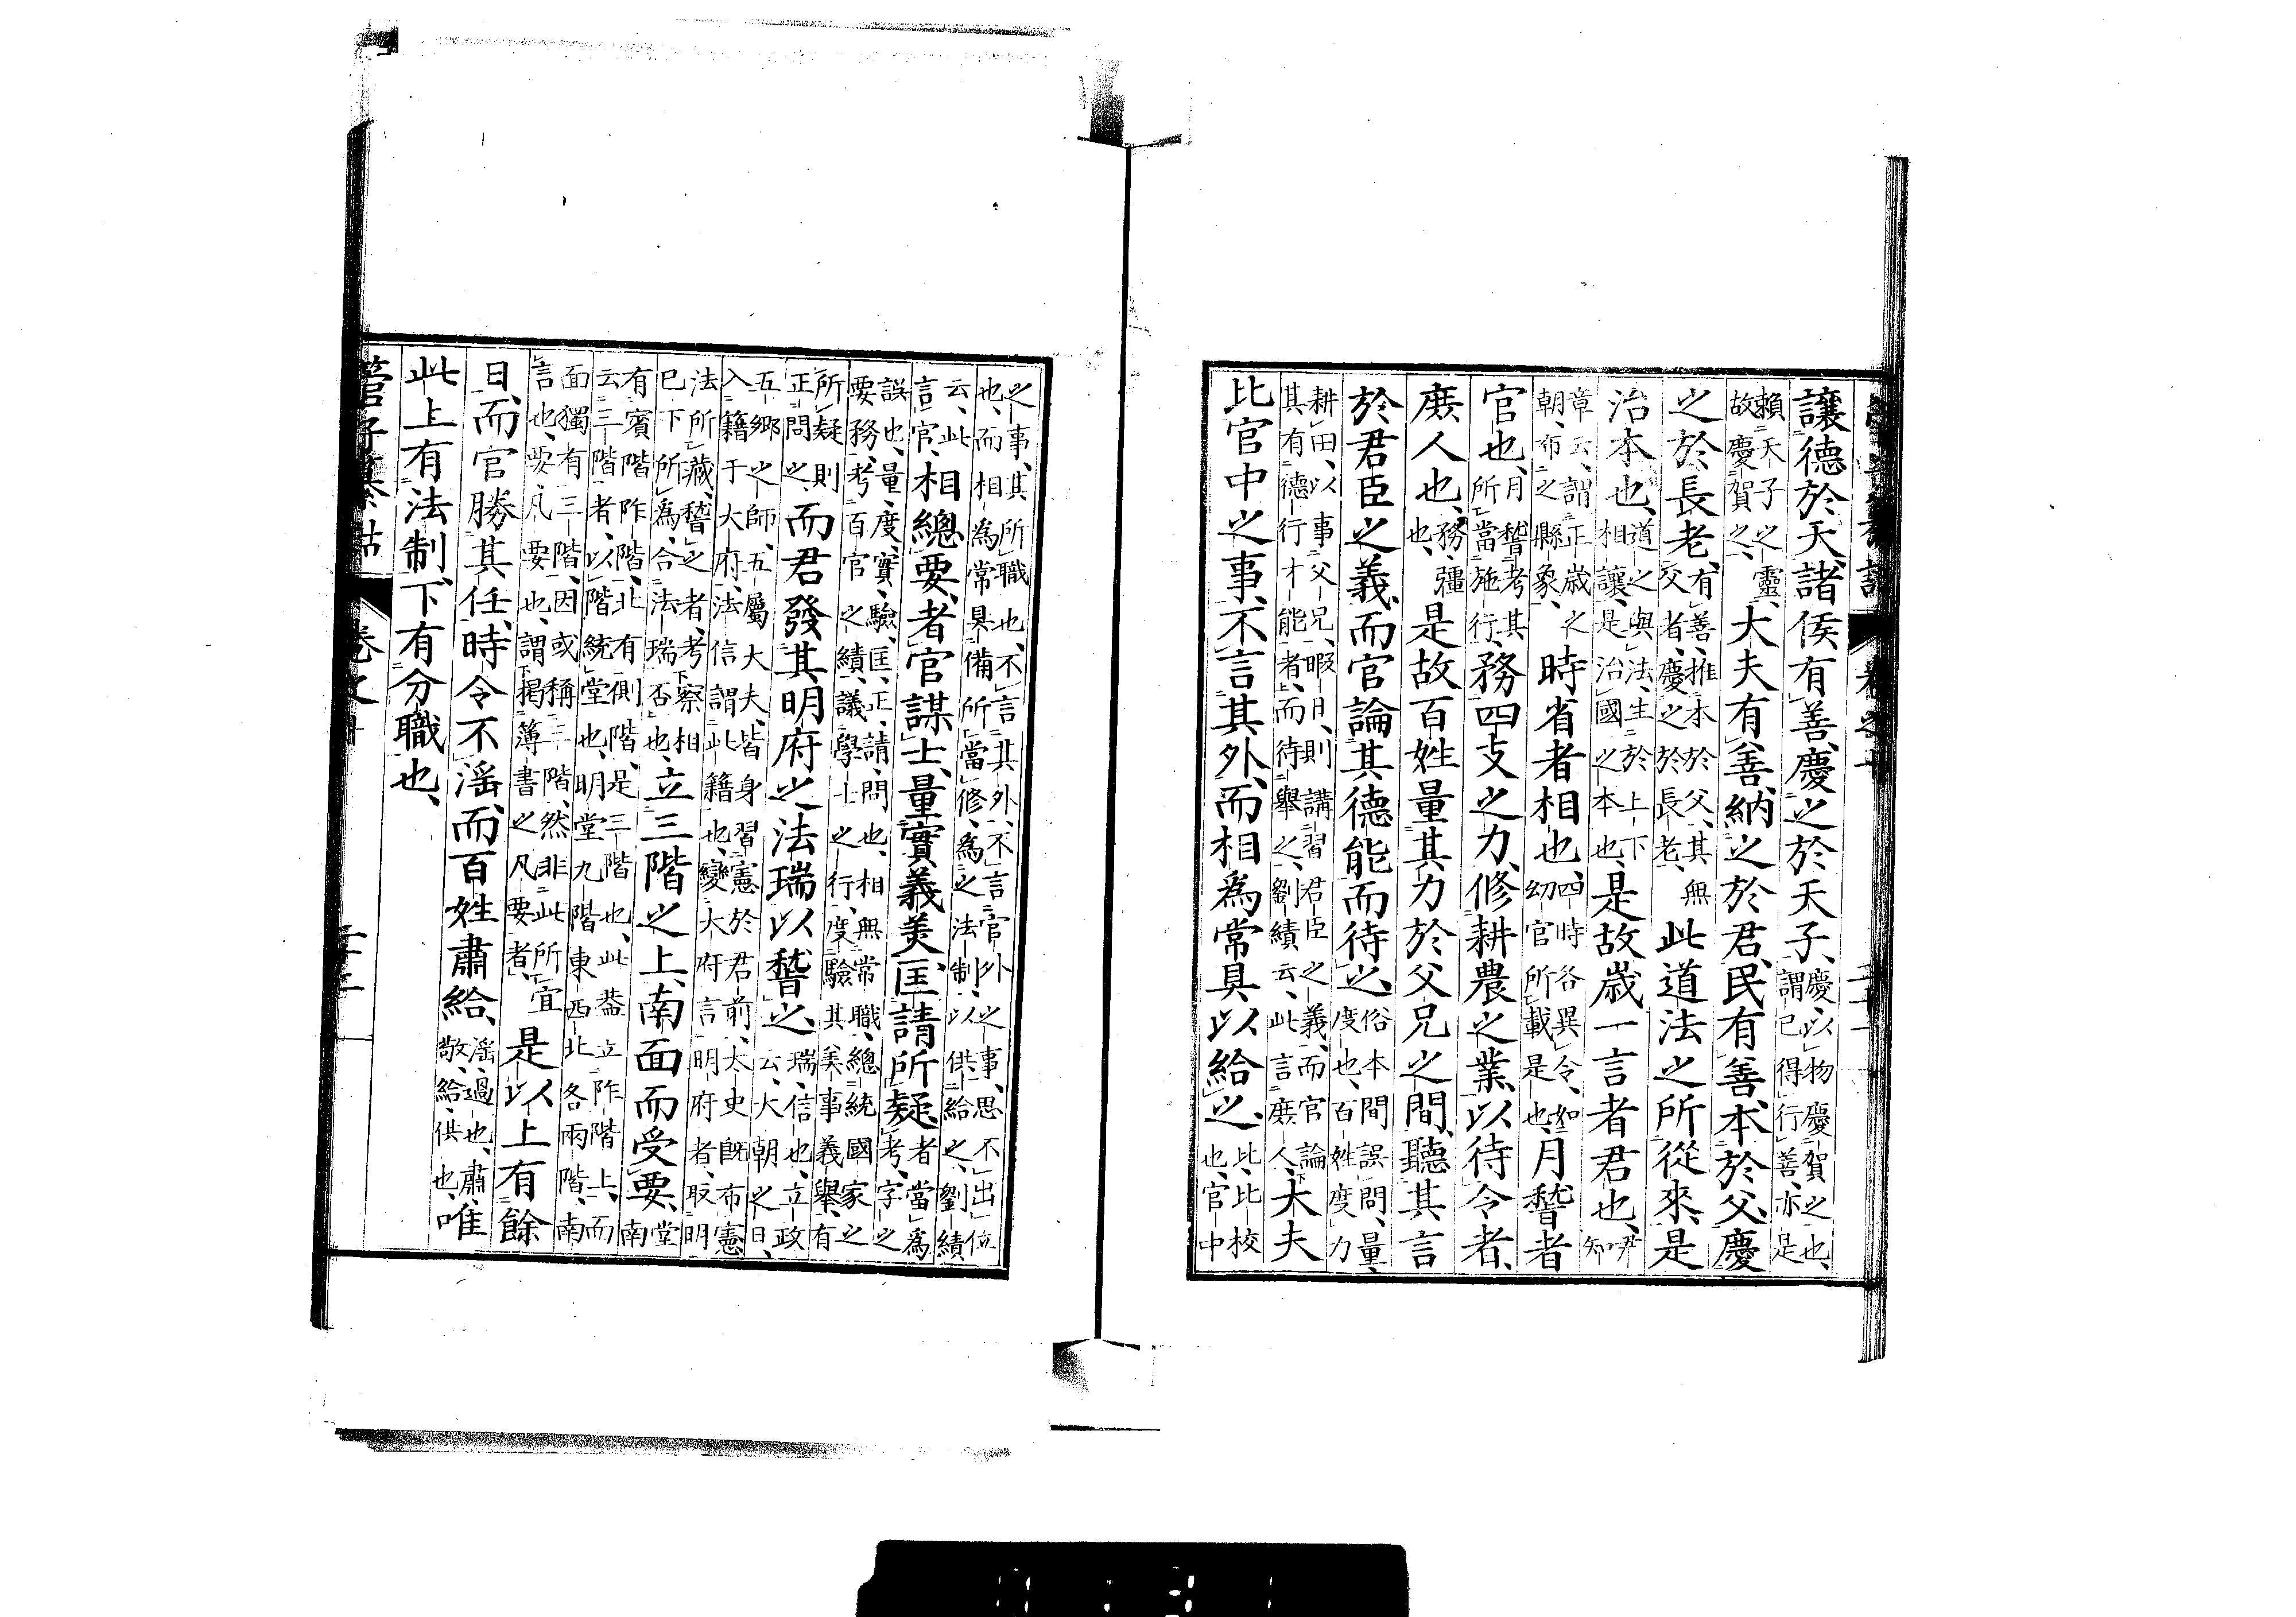 讓德於天、諸侯有善、慶之於天子、慶、以物慶賀之也、謂己得行善、亦是
賴天子之靈、故慶賀之、大夫有善、納之於君、民有善、本於父、慶
之於長老、有善、推本於父、其無父者、慶之於長老、此道法之所從來、是
治本也、道之與法、生於上下相讓、是治國之本也、是故歲一言者君也、尹知
章云、謂正歲之朝、布之縣象、時省者相也、四時各異令、如幼官所載是也、月稽者
官也、月稽考其所當施行、務四支之力、修耕農之業、以待令者、
庶人也、務、彊也、是故百姓量其力於父兄之間、聽其言
於君臣之義、而官論其德能而待之、俗本間誤問、量、度也、百姓度力
耕田、以事父兄、暇日、則講習君臣之義、而官論其有德行才能者、而待舉之、劉績云、此言庶人、大夫
比官中之事、不言其外、而相為常具以給之、比、比校也、官中
之事、其所職也、不言其外、不言官外之事、思不出位也、而相為常具備所當修、為之法制、以供給之、劉績
云、此言官、相總要、者官謀士、量實義美、匡請所疑、者當為考、字之
誤也、量、度、實、驗、匡、正、請、問也、相無常職、總統國家之要務、考百官之績、議學士之行、度驗其美事義舉、有
所疑則正問之、而君發其明府之法瑞以稽之、瑞、信也、立政云、大朝之日、
五鄉之師、五屬大夫、皆身習憲於君前、太史既布憲入籍于大府、法信謂此籍也、變大府言明府者、取明
法所藏、稽之者、考察相已下所為、合法瑞否也、立三階之上、南面而受要、堂南
有賓階阼階、北有側階、是三階也、此蓋立阼階上、而云三階者、以階統堂也、明堂九階東西北各兩階、南
面獨有三階、因或稱三階、然非此所宜言也、要、凡要也、謂揭簿書之凡要者、是以上有餘
日、而官勝其任、時令不淫、而百姓肅給、淫、過也、肅、敬、給、供也、唯
此上有法制、下有分職也、